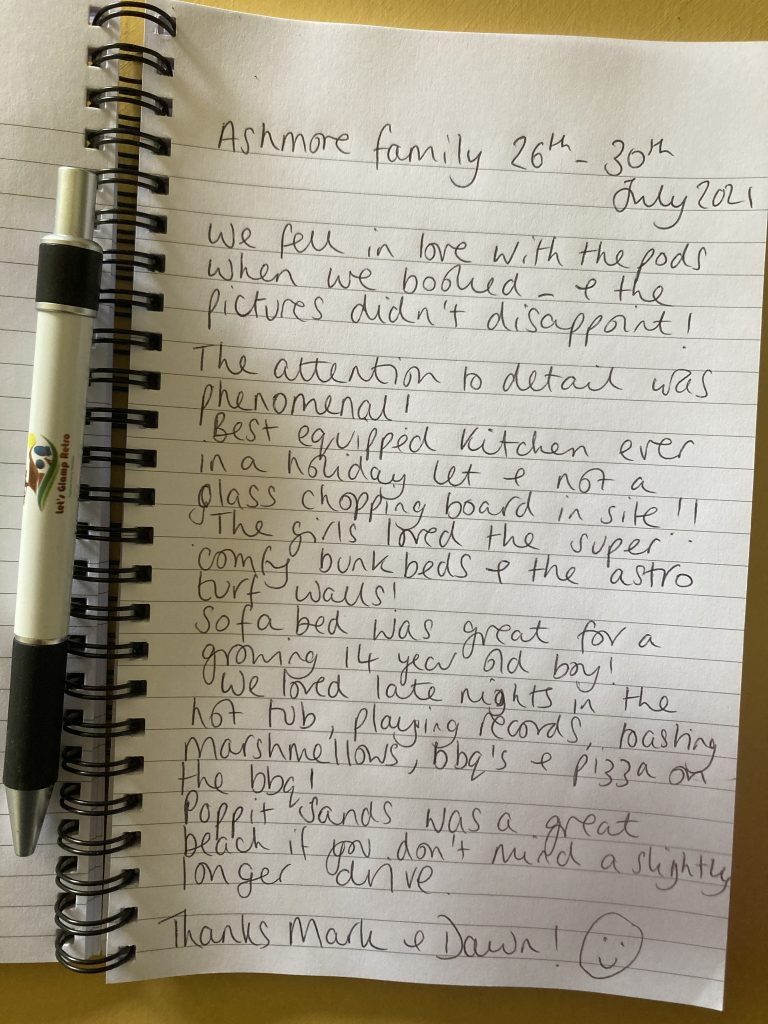 Ashmore family 26th - 30th
July 2021
We fell in love with the pods
when we booked - & the
pictures didn't disappoint!
The attention to detail was
phenomenal!
Best equipped kitchen ever
in a holiday let & not a
glass chopping board in site!!
The girls loved the super
comfy bunk beds & the astro
turf walls!
Sofa bed was great for a
growing 14 year old boy!
We loved late nights in the
hot tub, playing records, roasting
marshmellows, bbq's & pizza on
the bbq!
Poppit Sands was a great
beach if you don't mind a slightly
longer drive.
Thanks Mark & Dawn!
Let's Glamp Retro